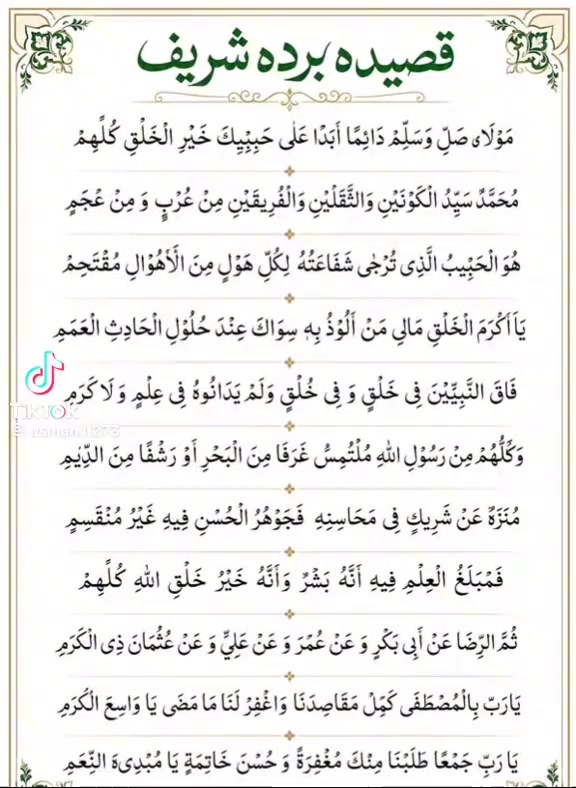 قصیدہ بردہ شریف
مَوْلَاى صَلِّ وَسَلِّمْ دَائِمًا أَبَدًا عَلٰى حَبِيْبِيكَ خَيْرِ الْخَلْقِ كُلِّهِمْ
مُحَمَّدٌ سَيِّدُ الْكَوْنَيْنِ وَالثَّقَلَيْنِ وَالْفُرِيقَيْنِ مِنْ عُرْبٍ وَ مِنْ عُجَمِ
هُوَ الْحَبِيْبُ الَّذِى تُرْجٰى شَفَاعَتُهُ لِكُلِّ هَوْلٍ مِنَ الْأَهْوَالِ مُقْتَحِمْ
يَا أَكْرَمَ الْخَلْقِ مَالِي مَنْ أَلُوْذُ بِهِ سِوَاكَ عِنْدَ حُلُوْلِ الْحَادِثِ الْعَمَمِ
فَاقَ النَّبِيِّيْنَ فِى خَلْقٍ وَ فِى خُلْقٍ وَلَمْ يَدَانُوهُ فِى عِلْمٍ وَ لَا كَرَمِ
وَكُلُّهُمْ مِنْ رَسُوْلِ اللهِ مُلْتُمِسٌ غَرَفَا مِنَ الْبَحْرِ أَوْ رَشْفًا مِنَ الدِّيَمِ
مُنَزَهٌ عَنْ شَرِيكٍ فِى مَحَاسِنِهِ فَجَوْهَرُ الْحُسْنِ فِيهِ غَيْرُ مُنْقَسِمِ
فَمْبَلَغُ الْعِلْمِ فِيهِ أَنَّهُ بَشْرٌ وَأَنَّهُ خَيْرُ خَلْقِ اللهِ كُلِّهِمْ
ثُمَّ الرِّضَا عَنْ أَبِى بَكْرٍ وَ عَنْ عُمَرَ وَ عَنْ عَلِيٍّ وَ عَنْ عُثْمَانَ ذِى الْكَرَمِ
يَارَبِّ بِالْمُصْطَفَى كَمِّلْ مَقَاصِدَنَا وَاغْفِرْ لَنَا مَا مَضَى يَا وَاسِعَ الْكُرَمِ
يَا رَبِّ جَمْعًا طَلَبْنَا مِنْكَ مُغْفِرَةً وَ حُسْنَ خَاتِمَةٍ يَا مُبْدِىءَ النِّعَمِ
TikTok